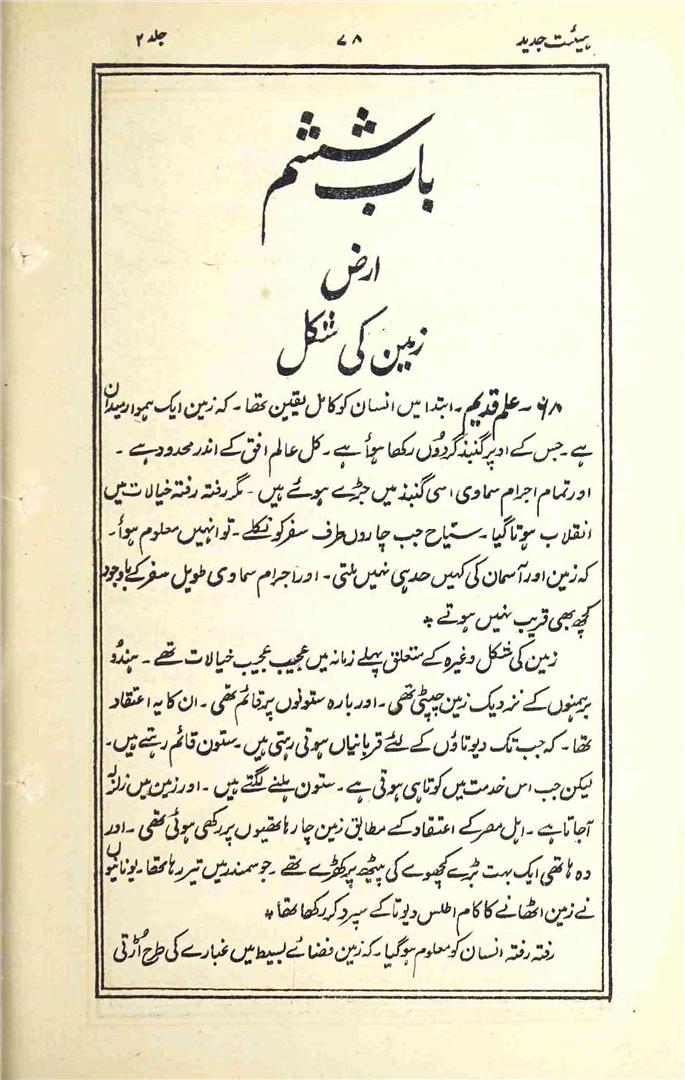 ہیئت جدید ۷۸ جلد ۲
باب ششم
ارض
زمین کی شکل
۶۸۔ علم قدیم۔ ابتدا میں انسان کو کامل یقین تھا۔ کہ زمین ایک ہموار میدان
ہے۔ جس کے اوپر گنبذ گردُوں رکھا ہوُا ہے۔ کل عالم افق کے اندر محدود ہے۔
اور تمام اجرام سماوی اسی گنبذ میں جڑے ہوئے ہیں۔ مگر رفتہ رفتہ خیالات میں
انقلاب ہوتا گیا۔ سیّاح جب چاروں طرف سفر کو نکلے۔ تو انہیں معلوم ہوُا۔
کہ زمین اور آسمان کی کہیں حد ہی نہیں ملتی۔ اور اجرام سماوی طویل سفر کے باوجود
کچھ بھی قریب نہیں ہوتے *
زمین کی شکل وغیرہ کے متعلق پہلے زمانہ میں عجیب عجیب خیالات تھے۔ ہندوُ
برہمنوں کے نزدیک زمین چپٹی تھی۔ اور بارہ ستونوں پر قائم تھی۔ ان کا یہ اعتقاد
تھا۔ کہ جب تک دیوتاؤں کے لئے قربانیاں ہوتی رہتی ہیں۔ ستون قائم رہتے ہیں۔
لیکن جب اس خدمت میں کوتاہی ہوتی ہے۔ ستون ہلنے لگتے ہیں۔ اور زمین میں زلزلہ
آجاتا ہے۔ اہل مصر کے اعتقاد کے مطابق زمین چار ہاتھیوں پر رکھی ہوئی تھی۔ اور
وہ ہاتھی ایک بہت بڑے کچھوے کی پیٹھ پر کھڑے تھے۔ جو سمندر میں تیر رہا تھا۔ یونانیوں
نے زمین اٹھانے کا کام اطلس دیوتا کے سپرد کر رکھا تھا *
رفتہ رفتہ انسان کو معلوم ہوگیا۔ کہ زمین فضائے بسیط میں غبارے کی طرح اُڑتی